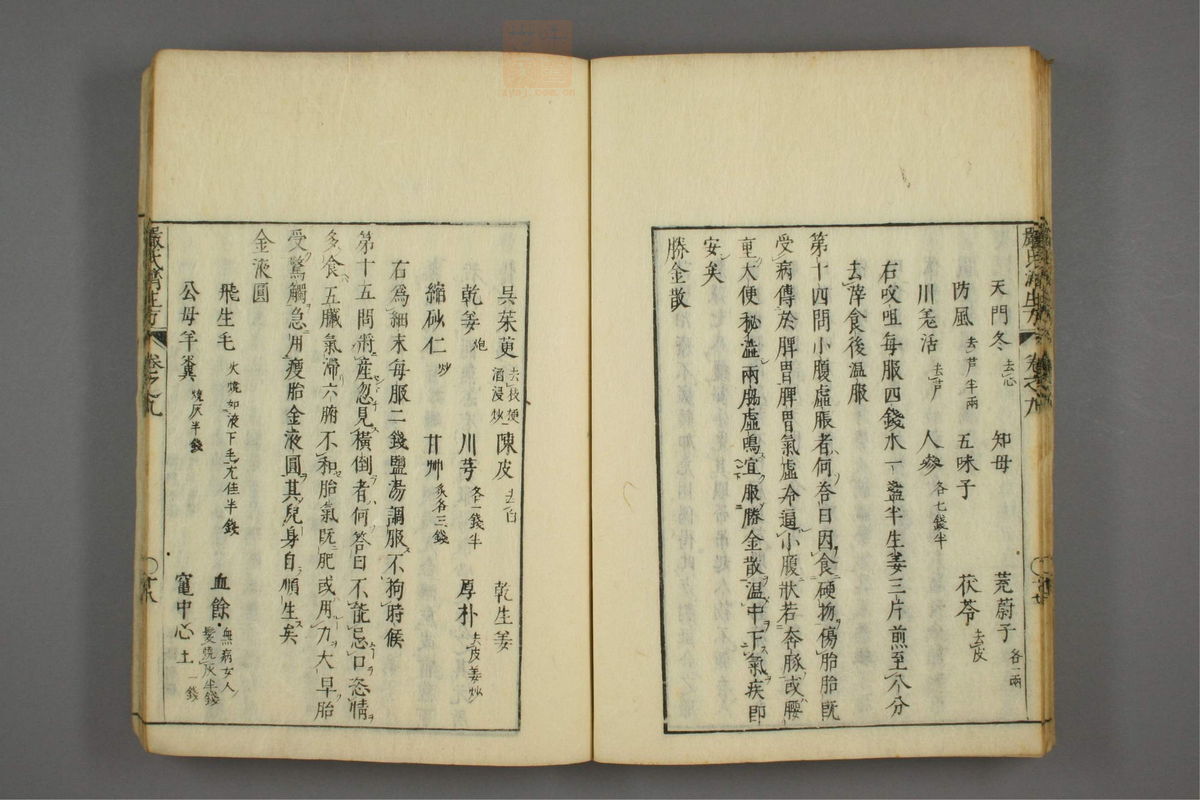 天門冬去心 知母 茺蔚子各一兩
防風去芦半兩 五味子 茯苓去皮
川羌活去芦 人參各七錢半
右㕮咀每服四錢水一盞半生姜三片煎至八分
去滓食後溫服
第十四問小腹虛脹者何答曰因食硬物傷胎胎既
受病傳於脾胃脾胃氣虛冷逼小腹狀若奔豚或腰
重大便秘澁兩脇虛鳴宜服勝金散温中下氣疾即
安矣
勝金散
吳茱萸去枝梗酒浸炒 陳皮去白 乾生姜
乾姜炮 川芎各一錢半 厚朴去皮姜炒
縮砂仁炒 甘艸炙各三錢
右為細末每服二錢鹽湯調服不拘時候
第十五問將產忽見橫倒者何答曰不能忌口恣情
多食五臟氣滯六腑不和胎氣既肥或用力大早胎
受驚觸急用瘦胎金液圓其兒身自順生矣
金液圓
飛生毛火燒如液下毛尤佳半錢 血餘無病女人髮燒灰半錢
公母羊糞燒灰半錢 竈中心土一錢
嚴氏濟生方 卷之九